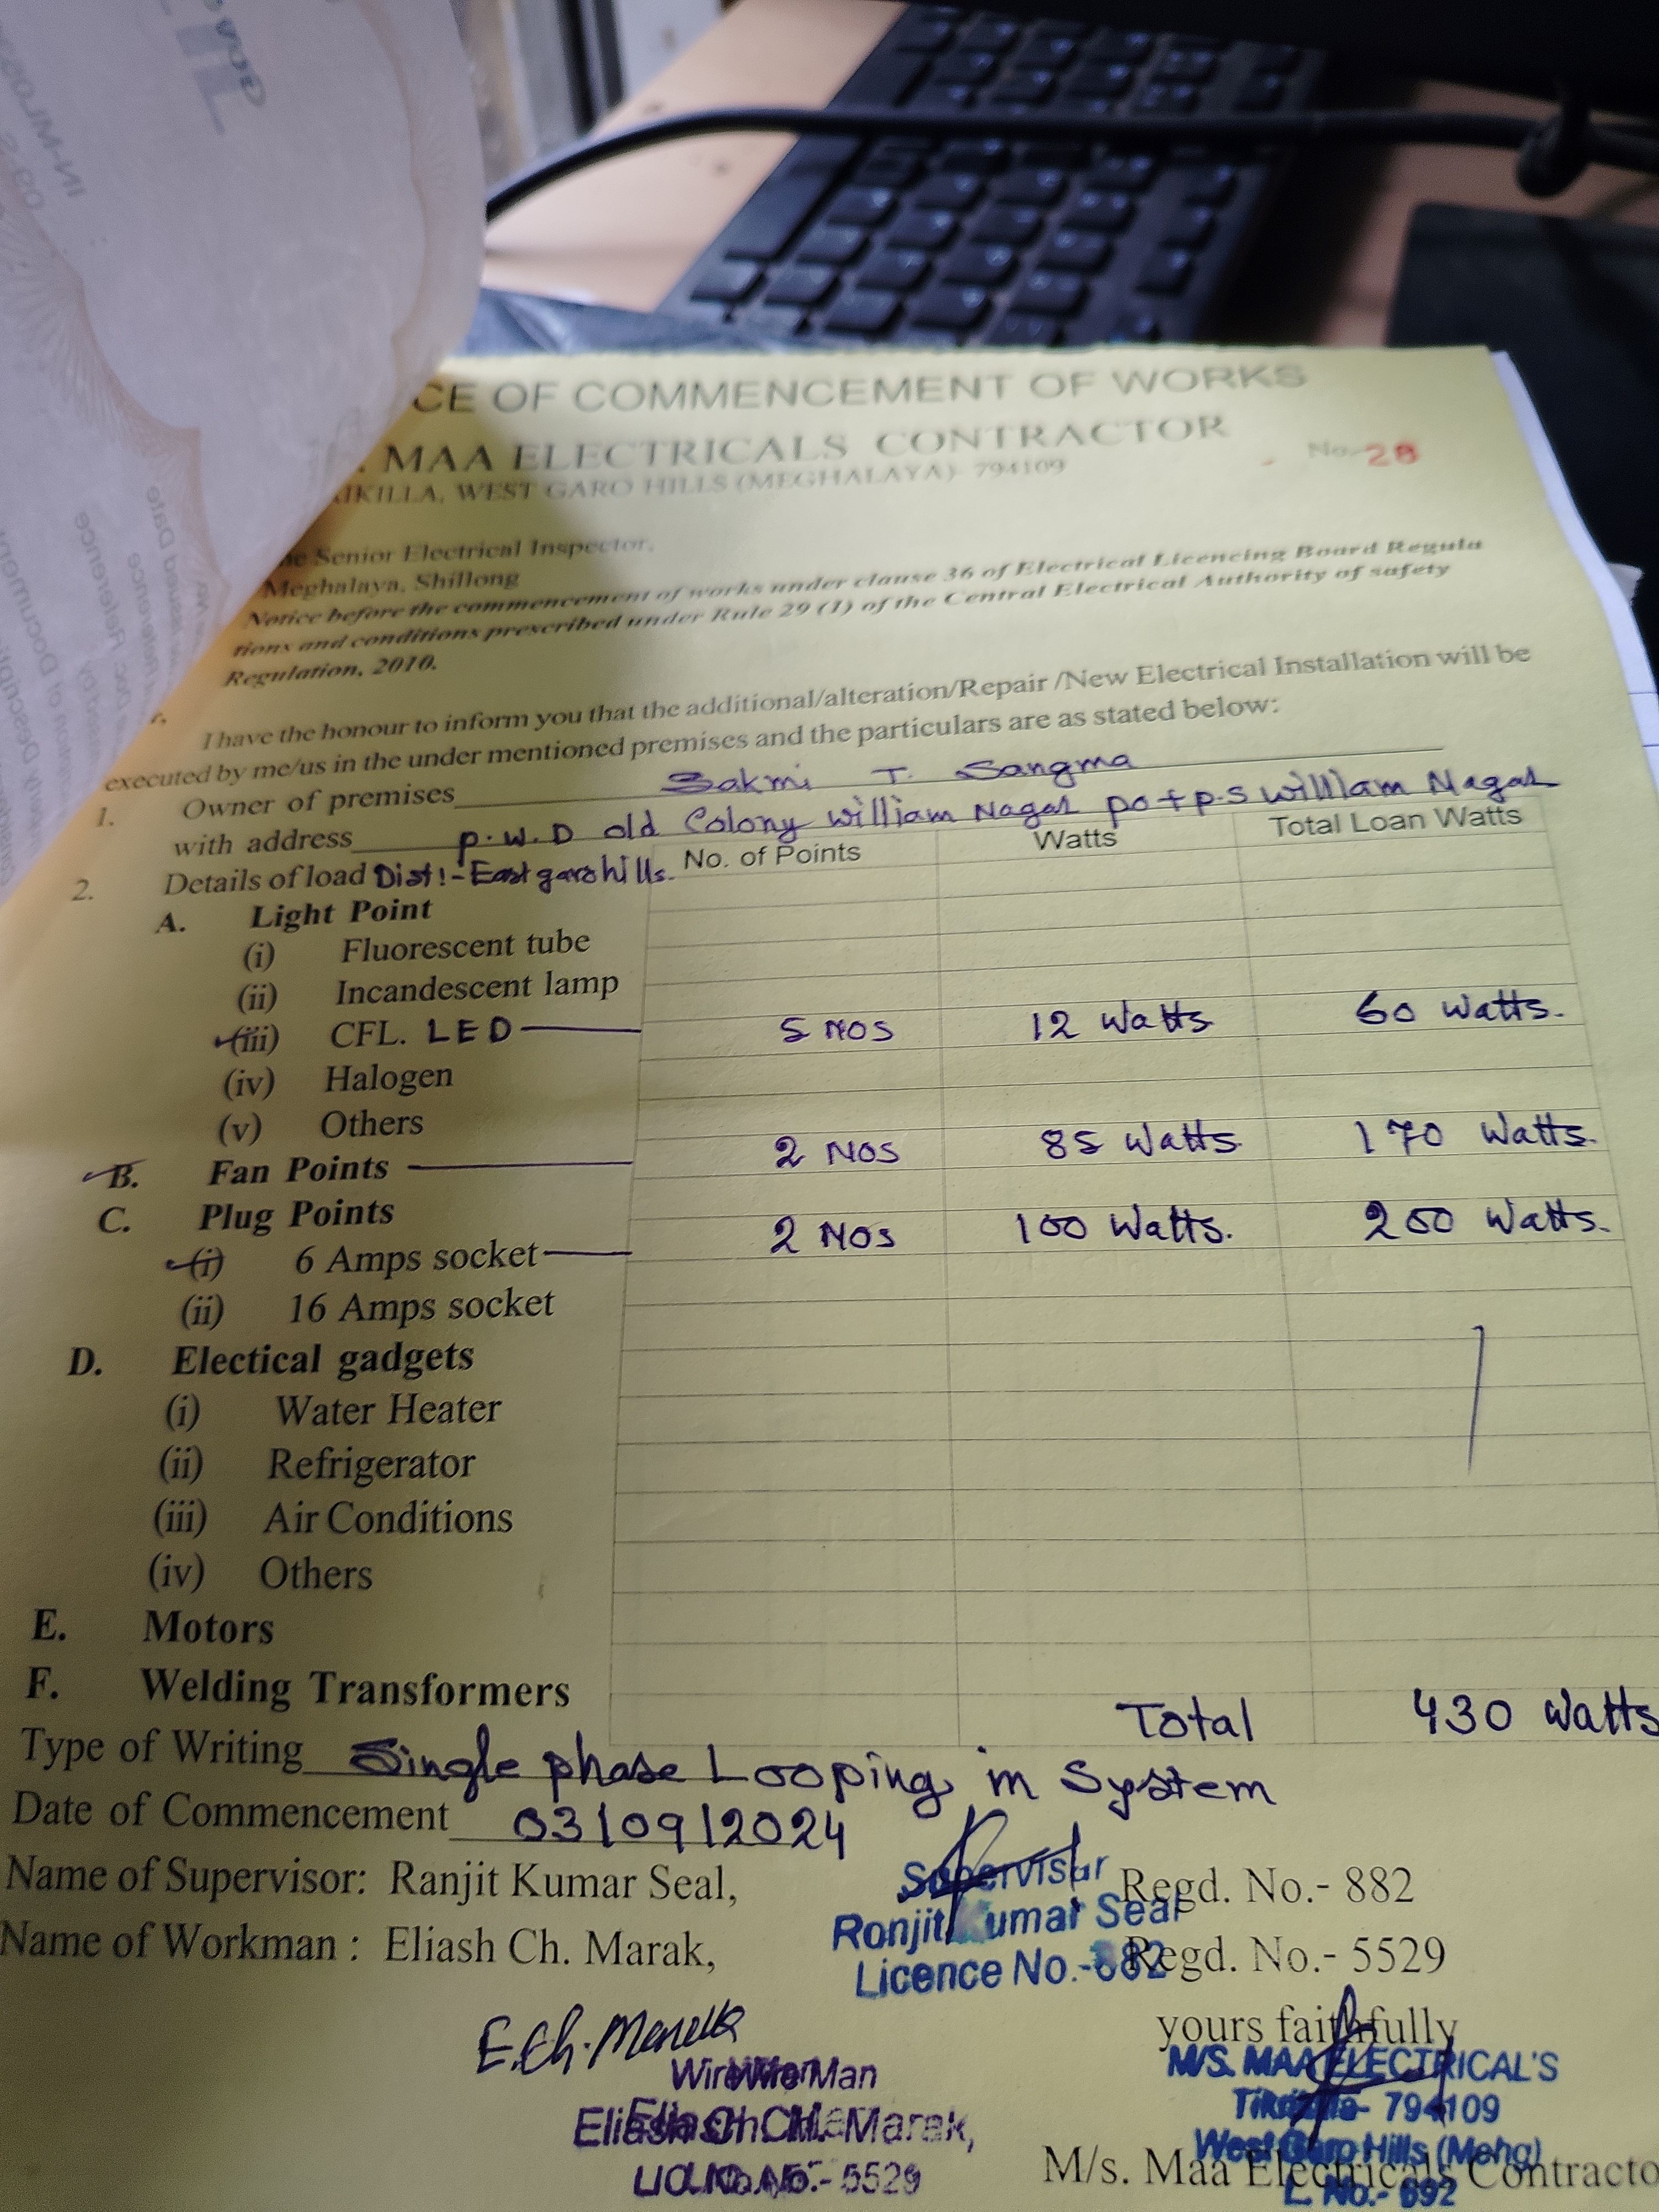 CE OF COMMENCEMENT OF WORKS
. MAA ELECTRICALS CONTRACTOR
No. 28
IKILLA, WEST GARO HILLS (MEGHALAYA) 794109
he Senior Electrical Inspector,
Meghalaya, Shillong
Notice before the commencement of works under clause 36 of Electrical Licencing Board Regula
tions and conditions prescribed under Rule 29 (1) of the Central Electrical Authority of safety
Regulation, 2010.
I have the honour to inform you that the additional/alteration/Repair /New Electrical Installation will be
executed by me/us in the under mentioned premises and the particulars are as stated below:
1. Owner of premises Sakmi T. Sangma
with address P.W.D old Colony william Nagar po+p.s william Nagar
2. Details of load Dist:- East garo hills. No. of Points Watts Total Loan Watts
A. Light Point
(i) Fluorescent tube
(ii) Incandescent lamp
(iii) CFL. LED 5 NOS 12 Watts 60 Watts.
(iv) Halogen
(v) Others
B. Fan Points 2 NOS 85 Watts. 170 Watts.
C. Plug Points
(i) 6 Amps socket 2 NOS 100 Watts. 200 Watts.
(ii) 16 Amps socket
D. Electical gadgets
(i) Water Heater
(ii) Refrigerator
(iii) Air Conditions
(iv) Others
E. Motors
F. Welding Transformers
Total 430 Watts
Type of Writing Single phase Looping in System
Date of Commencement 03/09/2024
Name of Supervisor: Ranjit Kumar Seal, Regd. No.- 882
Supervisor
Ronjit Kumar Seal
Licence No.-882
Name of Workman : Eliash Ch. Marak, Regd. No.- 5529
E.Ch. Marak
Wire Man
Eliash Ch. Marak,
LIC. No.- 5529
yours faithfully
M/S. MAA ELECTRICAL'S
794109
West Garo Hills (Megh)
L. No.- 692
M/s. Maa Electricals Contracto